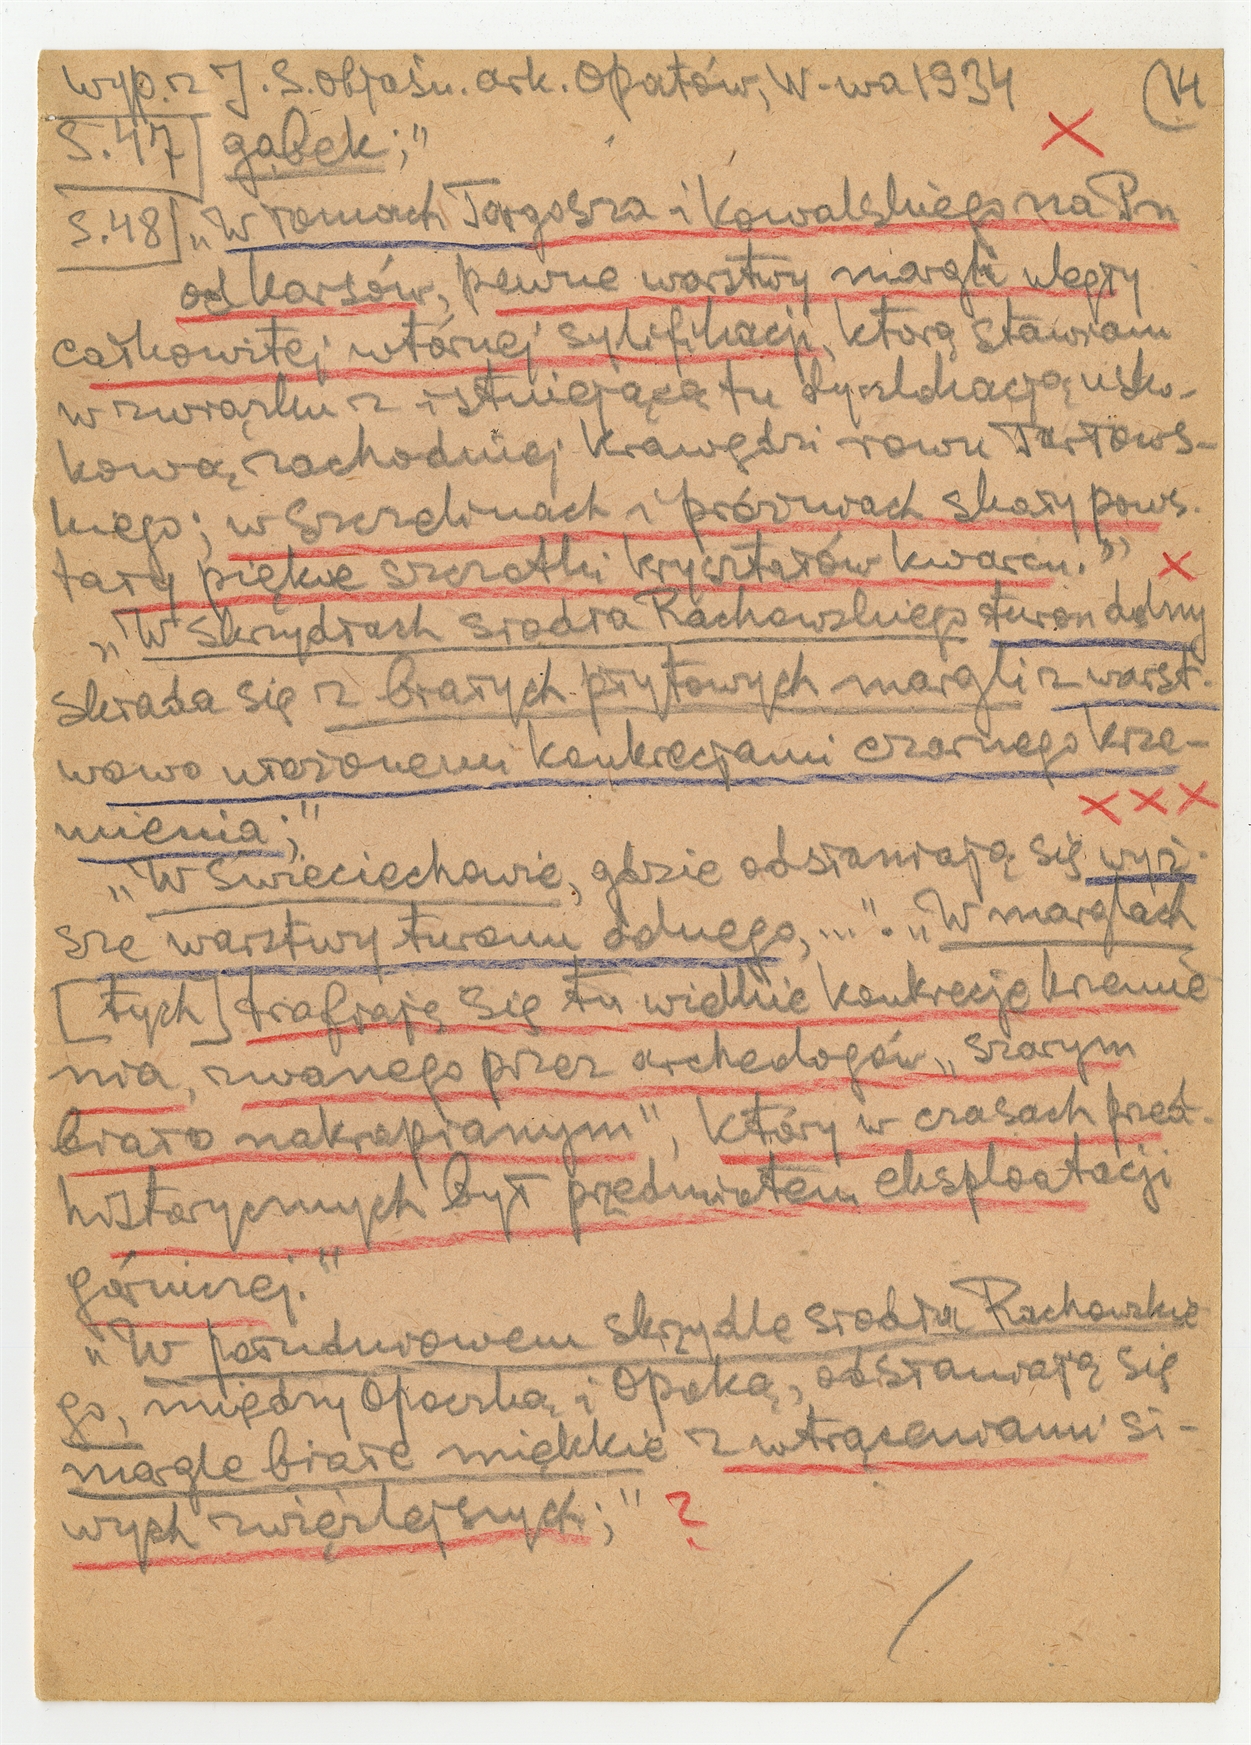 wyp. z J. S. objaśn. ark. Opatów, W-wa 1934 (14
S. 47] gąbek;" ×
S. 48] „W łomach Targosza i Kowalskiego na Pn
od Karsów, pewne warstwy margli uległy
całkowitej wtórnej sylifikacji, którą stawiam
w związku z istniejącą tu dyslokacją usko-
kową zachodniej krawędzi rowu Tarłows-
kiego; w szczelinach i próżniach skały pows-
tały piękne szczotki kryształów kwarcu." ×
„W skrzydłach siodła Rachowskiego turon dolny
składa się z białych płytowych margli z warst-
wowo ułożonemi konkrecjami czarnego krze-
mienia;" × × ×
„W Świeciechowie, gdzie odsłaniają się wyż-
sze warstwy turonu dolnego, ...". „W marglach
[tych] trafiają się tu wielkie konkrecje krzemie
nia, zwanego przez archeologów „szarym
biało nakrapianym", który w czasach przed-
historycznych był przedmiotem eksploatacji
górniczej."
„W południowem skrzydle siodła Rachowskie
go, między Opoczką i Opoką, odsłaniają się
margle białe miękkie z wtrąceniami si-
wych zwięźlejszych;" ?